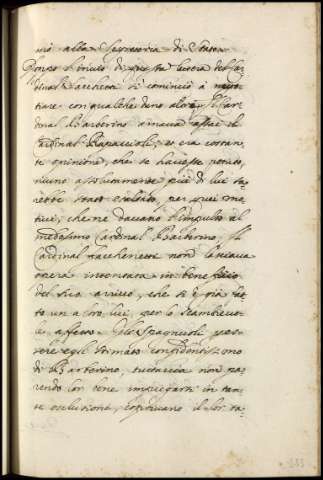 alla Segreteria di Stato.
Dopo l'arrivo di questa lettera del Car-
dinal Sacchetti si cominciò a
tiare con qualche altro. Il Car-
dinal Barberino amava assai il
Cardinal Rapaccioli, et era costan-
te opinione, che se havesse potuto,
niuno assolutamente più di lui sa-
rebbe stato esaltato, per quei mo-
tivi, che ne davano l'impulso al
medesimo Cardinal Barberino. Il
Cardinal Facchenetti non lasciava
opera intentata in beneficio
del suo amico, che si è già det-
to un altro lui, per lo scambievo-
le affetto. Gli Spagnuoli, per
essere egli stimato confidentissimo
di Barberino, tuttavia non pa-
rendo lor bene impiegarsi in tan-
te esclusioni, coprivano il lor ta-